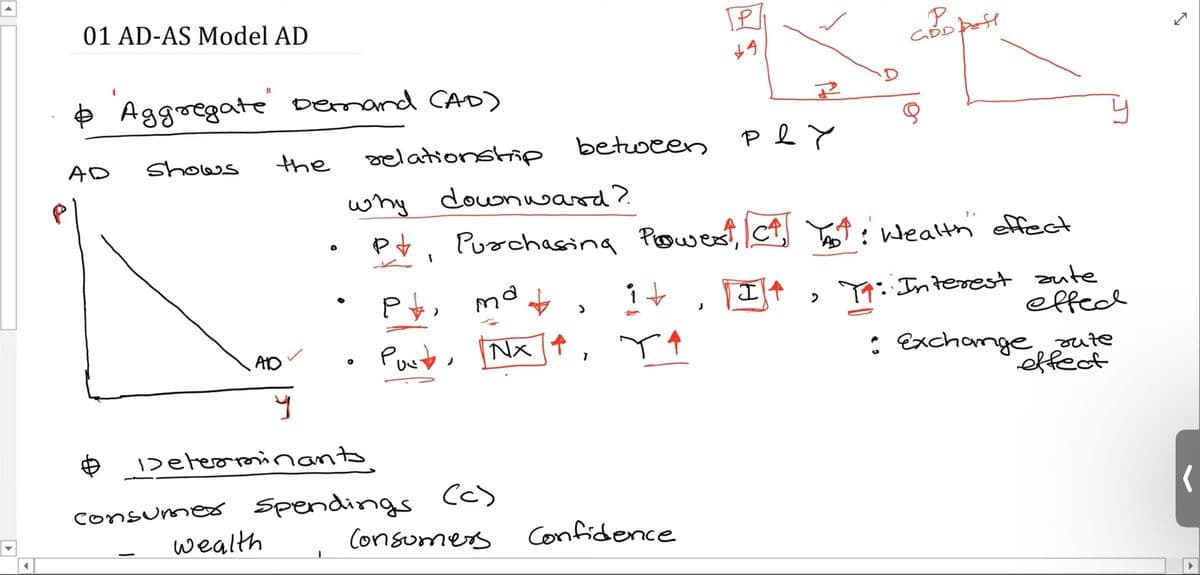 01 AD-AS Model AD
P
↓↑
D
⇄
Q
P
GDD
y
"Aggregate" Demand (AD)
AD shows the relationship between P & Y
why downward?
P
AD ✓
y
• P↓, Purchasing Power↑, C↑, Y AD↑ : "Wealth" effect
• P↓, md ↓, i↓, I↑, Y↑: Interest rate effect
• PUS↓, NX↑, Y↑ : Exchange rate effect
Determinants
consumer spendings (C)
– wealth, Consumers Confidence